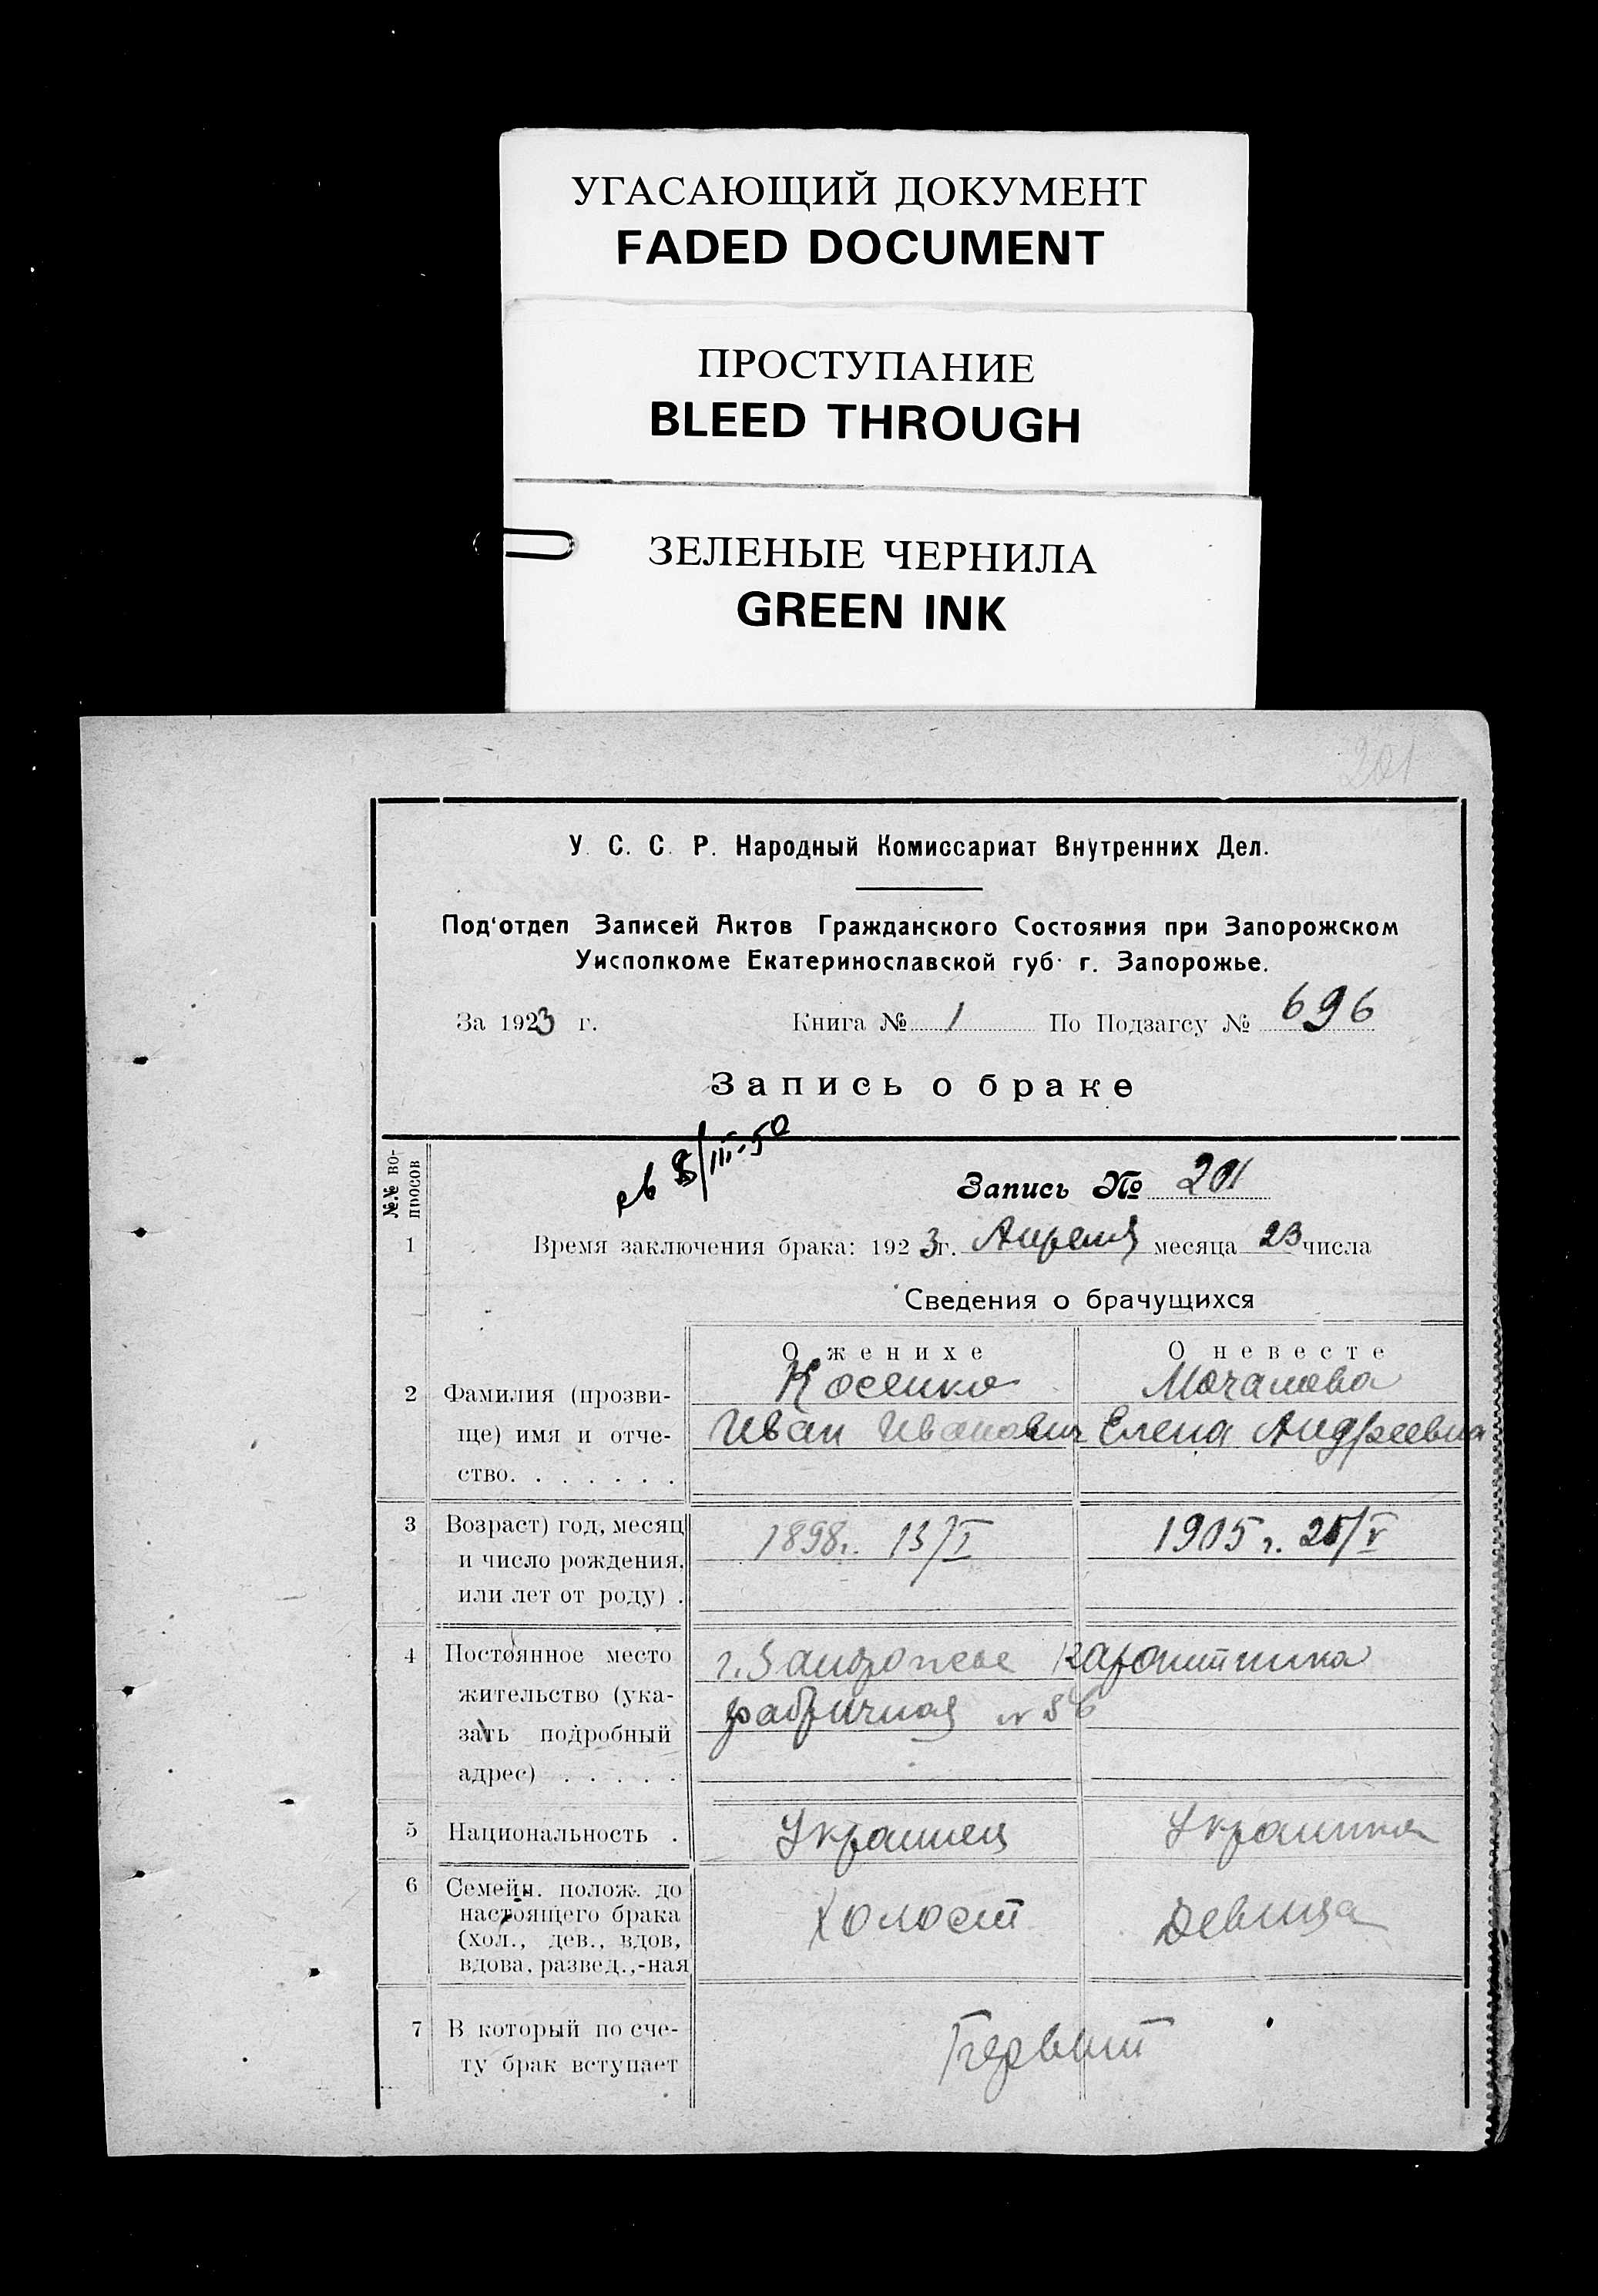 УГАСАЮЩИЙ ДОКУМЕНТ
FADED DOCUMENT
ПРОСТУПАНИЕ
BLEED THROUGH
ЗЕЛЕНЫЕ ЧЕРНИЛА
GREEN INK
201
У. С. С. Р. Народный Комиссариат Внутренних Дел.
Под'отдел Записей Актов Гражданского Состояния при Запорожском
Уисполкоме Екатеринославской губ. г. Запорожье.
За 1923 г. Книга № 1 По Подзагсу № 696
Запись о браке
№.№ во-
просов
8/III-50
Запись № 201
1 Время заключения брака: 1923г. Апреля месяца 23 числа
Сведения о брачущихся
О женихе О невесте
2 Фамилия (прозви- Косенко Мочалова
ще) имя и отче- Иван Иванович Елена Андреевна
ство. . . . . . .
3 Возраст) год, месяц 1898г. 13/I 1905 г. 25/V
и число рождения,
или лет от роду) .
4 Постоянное место г. Запорожье
жительство (ука- фабричная № 56
зать подробный
адрес) . . . . .
5 Национальность . Украинец Украинка
6 Семейн. полож. до
настоящего брака Холост Девица
(хол., дев., вдов,
вдова, развед.,-ная
7 В который по сче- Первый
ту брак вступает